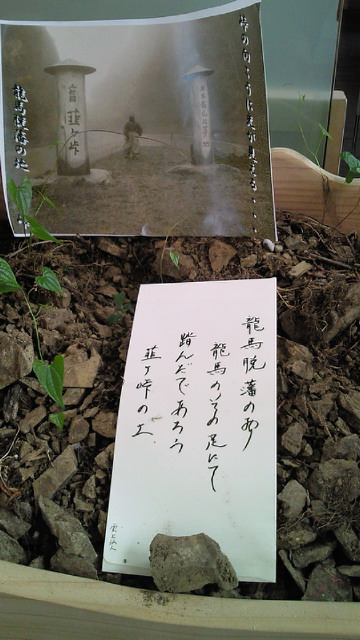 峠の向こうに
が見える・・・
韮ヶ峠
龍馬脱藩の地
龍馬脱藩の
龍馬のその足にて
踏んだであろう
韮ヶ峠の土